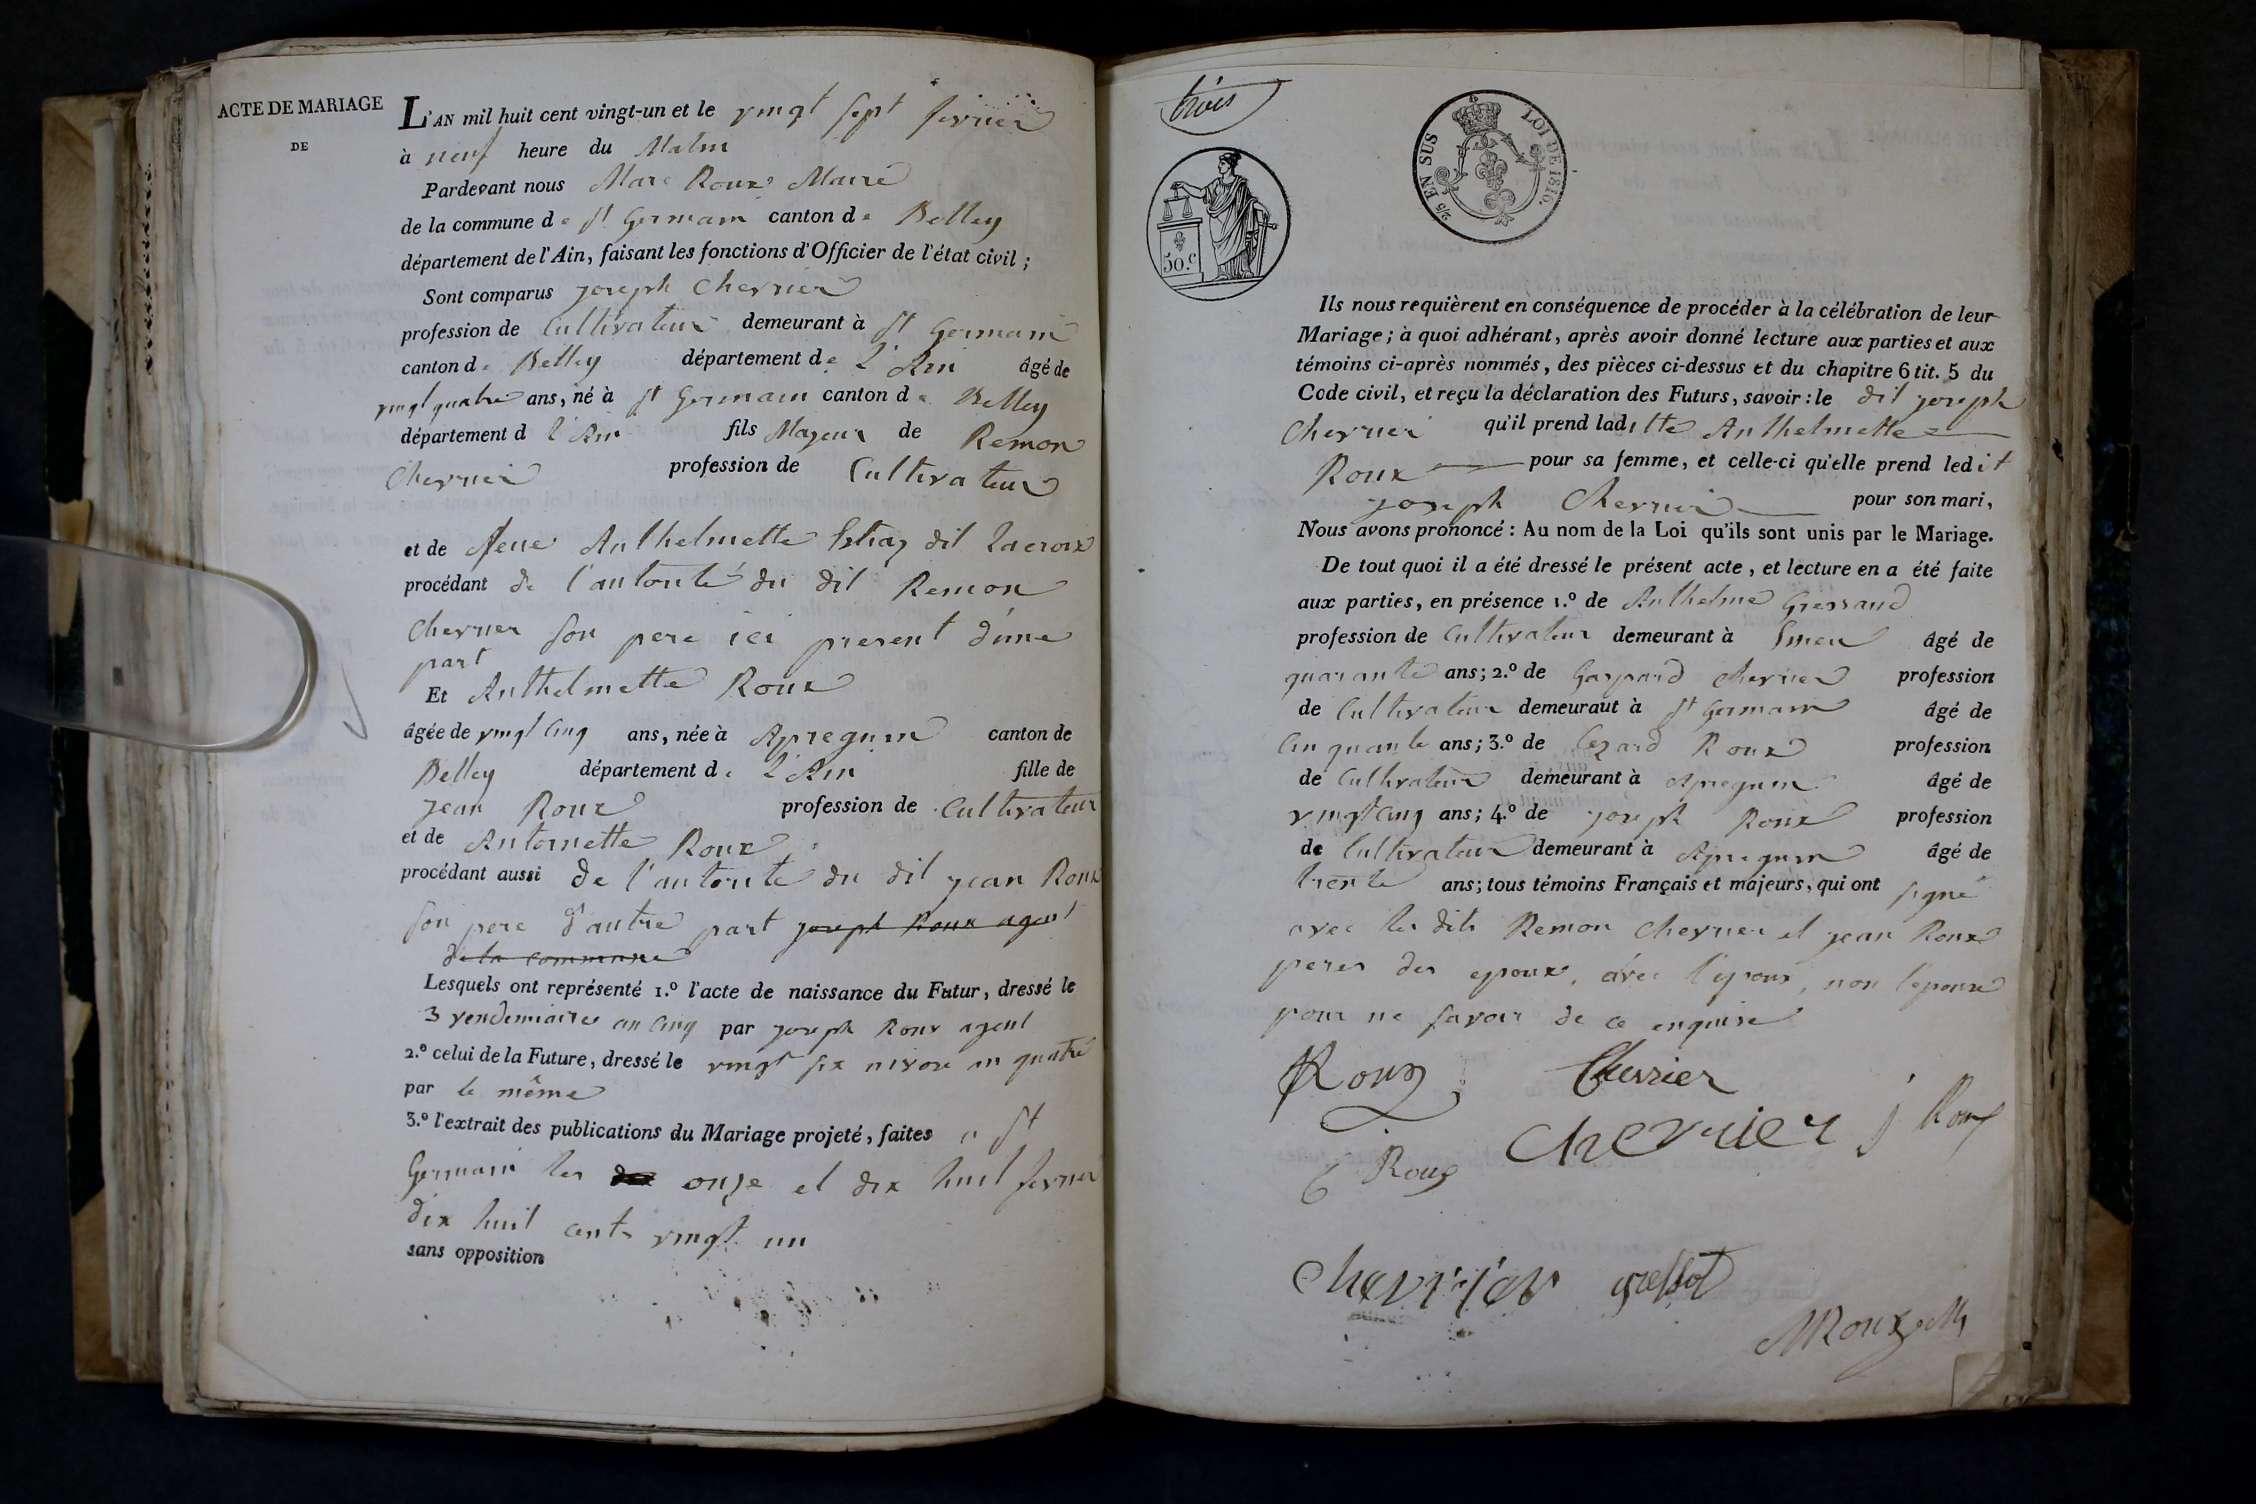 ACTE DE MARIAGE
DE
L'AN mil huit cent vingt-un et le vingt sept fevrier
à neuf heure du Matin
Pardevant nous Marc Roux Maire
de la commune de St Germain canton de Belley
département de l'Ain, faisant les fonctions d'Officier de l'état civil ;
Sont comparus joseph Chevrier
profession de Cultivateur demeurant à St Germain
canton de Belley département de L'Ain âgé de
vingt quatre ans, né à St Germain canton de Belley
département d L'Ain fils Majeur de Remon
Chevrier profession de Cultivateur
et de feue Anthelmette dit Lacroix
procédant de l'autorité du dit Remon
Chevrier son pere ici present d'une
part
Et Anthelmette Roux
âgée de vingt cinq ans, née à Apregnin canton de
Belley département de L'Ain fille de
jean Roux profession de Cultivateur
et de Antoinette Roux
procédant aussi de l'autorité du dit jean Roux
son pere d'autre part joseph Roux agent
de la commune
Lesquels ont représenté 1.º l'acte de naissance du Futur, dressé le
3 vendemiaire an cinq par joseph Roux agent
2.º celui de la Future, dressé le vingt six nivose an quatre
par le même
3.º l'extrait des publications du Mariage projeté, faites a St
Germain les onze et dix huit fevrier
dix huit cent vingt un
sans opposition
trois
50.c
2/5 EN SUS LOI DE 1816.
Ils nous requièrent en conséquence de procéder à la célébration de leur
Mariage ; à quoi adhérant, après avoir donné lecture aux parties et aux
témoins ci-après nommés, des pièces ci-dessus et du chapitre 6 tit. 5 du
Code civil, et reçu la déclaration des Futurs, savoir : le dit joseph
Chevrier qu'il prend laditte Anthelmette
Roux pour sa femme, et celle-ci qu'elle prend ledit
joseph Chevrier pour son mari,
Nous avons prononcé : Au nom de la Loi qu'ils sont unis par le Mariage.
De tout quoi il a été dressé le présent acte, et lecture en a été faite
aux parties, en présence 1.º de Anthelme
profession de Cultivateur demeurant à âgé de
quarante ans ; 2.º de Gaspard Chevrier profession
de Cultivateur demeuraut à St Germain âgé de
Cinquante ans ; 3.º de Cezard Roux profession
de Cultivateur demeurant à Apregnin âgé de
vingt cinq ans ; 4.º de joseph Roux profession
de Cultivateur demeurant à Apregnin âgé de
trente ans ; tous témoins Français et majeurs, qui ont signé
avec les dits Remon Chevrier et jean Roux
peres des epoux, avec l'epoux, non l'epouse
pour ne savoir de ce enquise
Roux Chevrier
Chevrier j Roux
C Roux
chevrier
MRoux